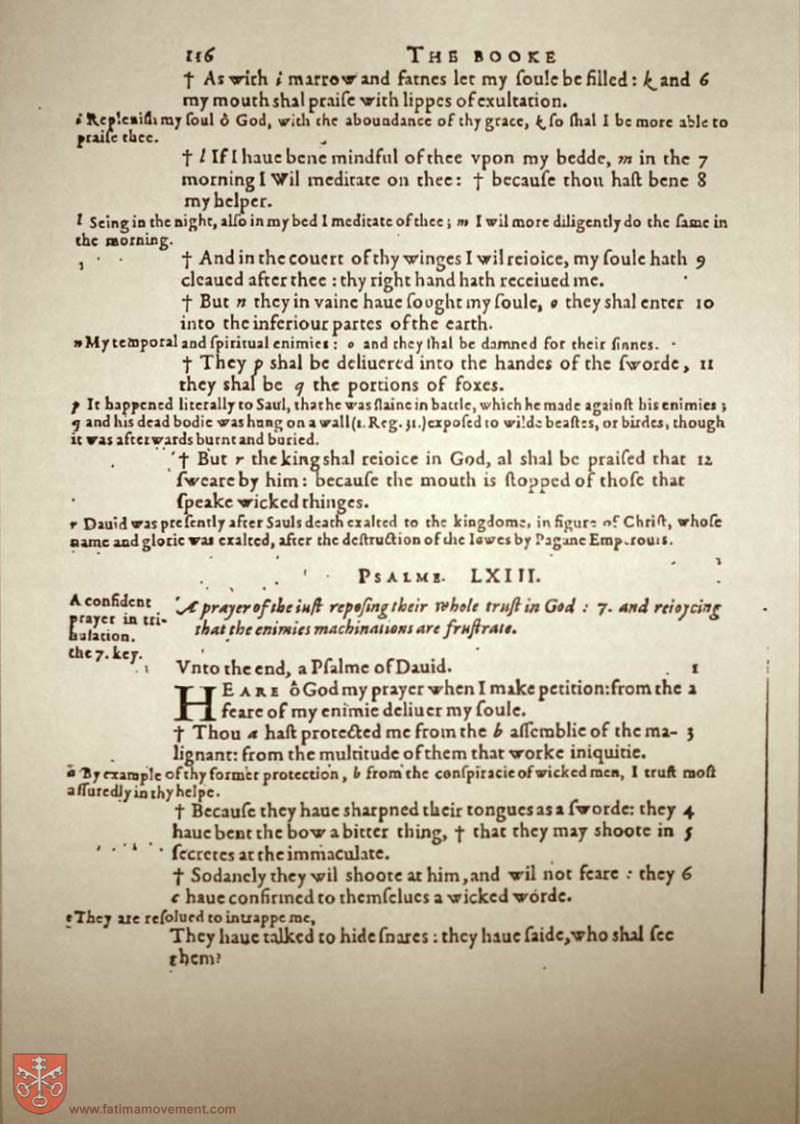 116 THE BOOKE
† As with i marrow and fatnes let my ſoule be filled: k and 6
my mouth shal praiſe with lippes of exultation.
i Repleniſh my ſoul ô God, with the aboundance of thy grace, k ſo ſhal I be more able to
praiſe thee.
† l If I haue bene mindful of thee vpon my bedde, m in the 7
morning I Wil meditate on thee: † becauſe thou haſt bene 8
my helper.
l Seing in the night, alſo in my bed I meditate of thee; m I wil more diligently do the ſame in
the morning.
† And in the couert of thy winges I wil reioice, my ſoule hath 9
cleaued after thee: thy right hand hath receiued me.
† But n they in vaine haue ſought my ſoule, o they shal enter 10
into the inferiour partes of the earth.
n My temporal and ſpiritual enimies: o and they ſhal be damned for their ſinnes.
† They p shal be deliuered into the handes of the ſworde, 11
they shal be q the portions of foxes.
p It happened literally to Saul, that he was ſlaine in battle, which he made againſt his enimies;
q and his dead bodie was hung on a wall (1. Reg. 31.) expoſed to wilde beaſtes, or birdes, though
it was afterwards burnt and buried.
† But r the king shal reioice in God, al shal be praiſed that 12
ſweare by him: becauſe the mouth is ſtopped of thoſe that
ſpeake wicked thinges.
r Dauid was preſently after Sauls death exalted to the kingdome, in figure of Chriſt, whoſe
name and glorie was exalted, after the deſtruction of the Iewes by Pagane Emperouis.
PSALME. LXIII.
A confident
prayer in tri-
bulation.
the 7. key.
A prayer of the iuſt repoſing their whole truſt in God: 7. and reioycing
that the enimies machinations are fruſtrate.
Vnto the end, a Pſalme of Dauid. 1
HEARE ô God my prayer when I make petition: from the 2
feare of my enimie deliuer my ſoule.
† Thou a haſt protected me from the b aſſemblie of the ma- 3
lignant: from the multitude of them that worke iniquitie.
a By example of thy former protection, b from the conſpiracie of wicked men, I truſt moſt
aſſuredly in thy helpe.
† Becauſe they haue sharpned their tongues as a ſworde: they 4
haue bent the bow a bitter thing, † that they may shoote in 5
ſecretes at the immaculate.
† Sodanely they wil shoote at him, and wil not feare: they 6
c haue confirmed to themſelues a wicked worde.
c They are reſolued to intrappe me,
They haue talked to hide ſnares: they haue ſaide, who shal ſee
them?
www.fatimamovement.com